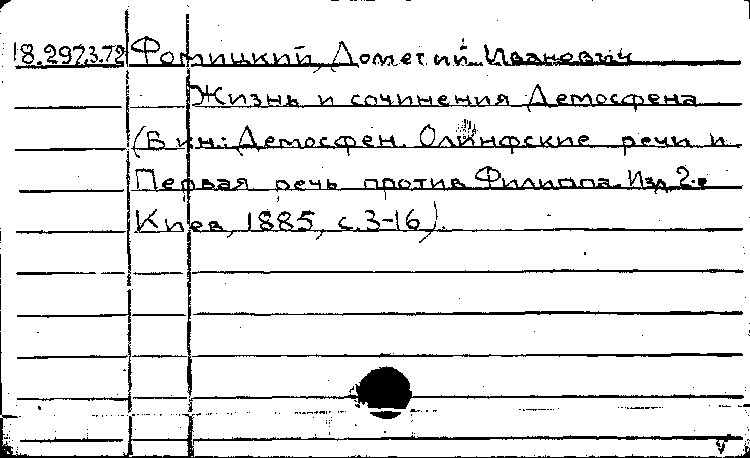 18.297.3.72 Фомицкий, Дометий Иванович
Жизнь и сочинения Демосфена
(В кн.: Демосфен. Олинфские речи и
Первая речь против Филиппа. Изд. 2-е
Киев, 1885, с. 3-16).